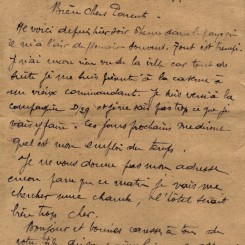 Bien Chers Parents.
Me voici depuis hier soir 8 heures dans le pays où
il n'a l'air de pleuvoir souvent. Tout est trempé.
J'ai encore rien vu de la ville car tout de
suite je me suis présenté à la caserne à
un vieux commandant. Je suis versé à la
compagnie D29 et je ne sais pas trop ce que je
vais y faire. Ces jours prochains me diront
quel est mon emploi du temps.
Je ne vous donne pas mon adresse
encore parce que ce matin je vais me
chercher une chambre, l'hôtel serait
bien trop cher.
Bonjour et bonnes caresses à tous de
votre fils qui